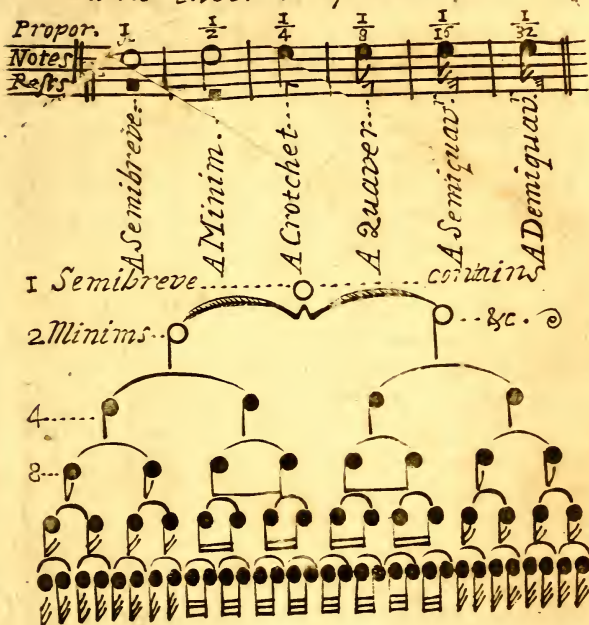 Propor. 1 1/2 1/4 1/8 1/16 1/32
Notes
Rests
A Semibreve
A Minim.
A Crotchet
A Quaver
A Semiquav.r
A Demiquav.r
1 Semibreve contains
2 Minims &c.
4
8